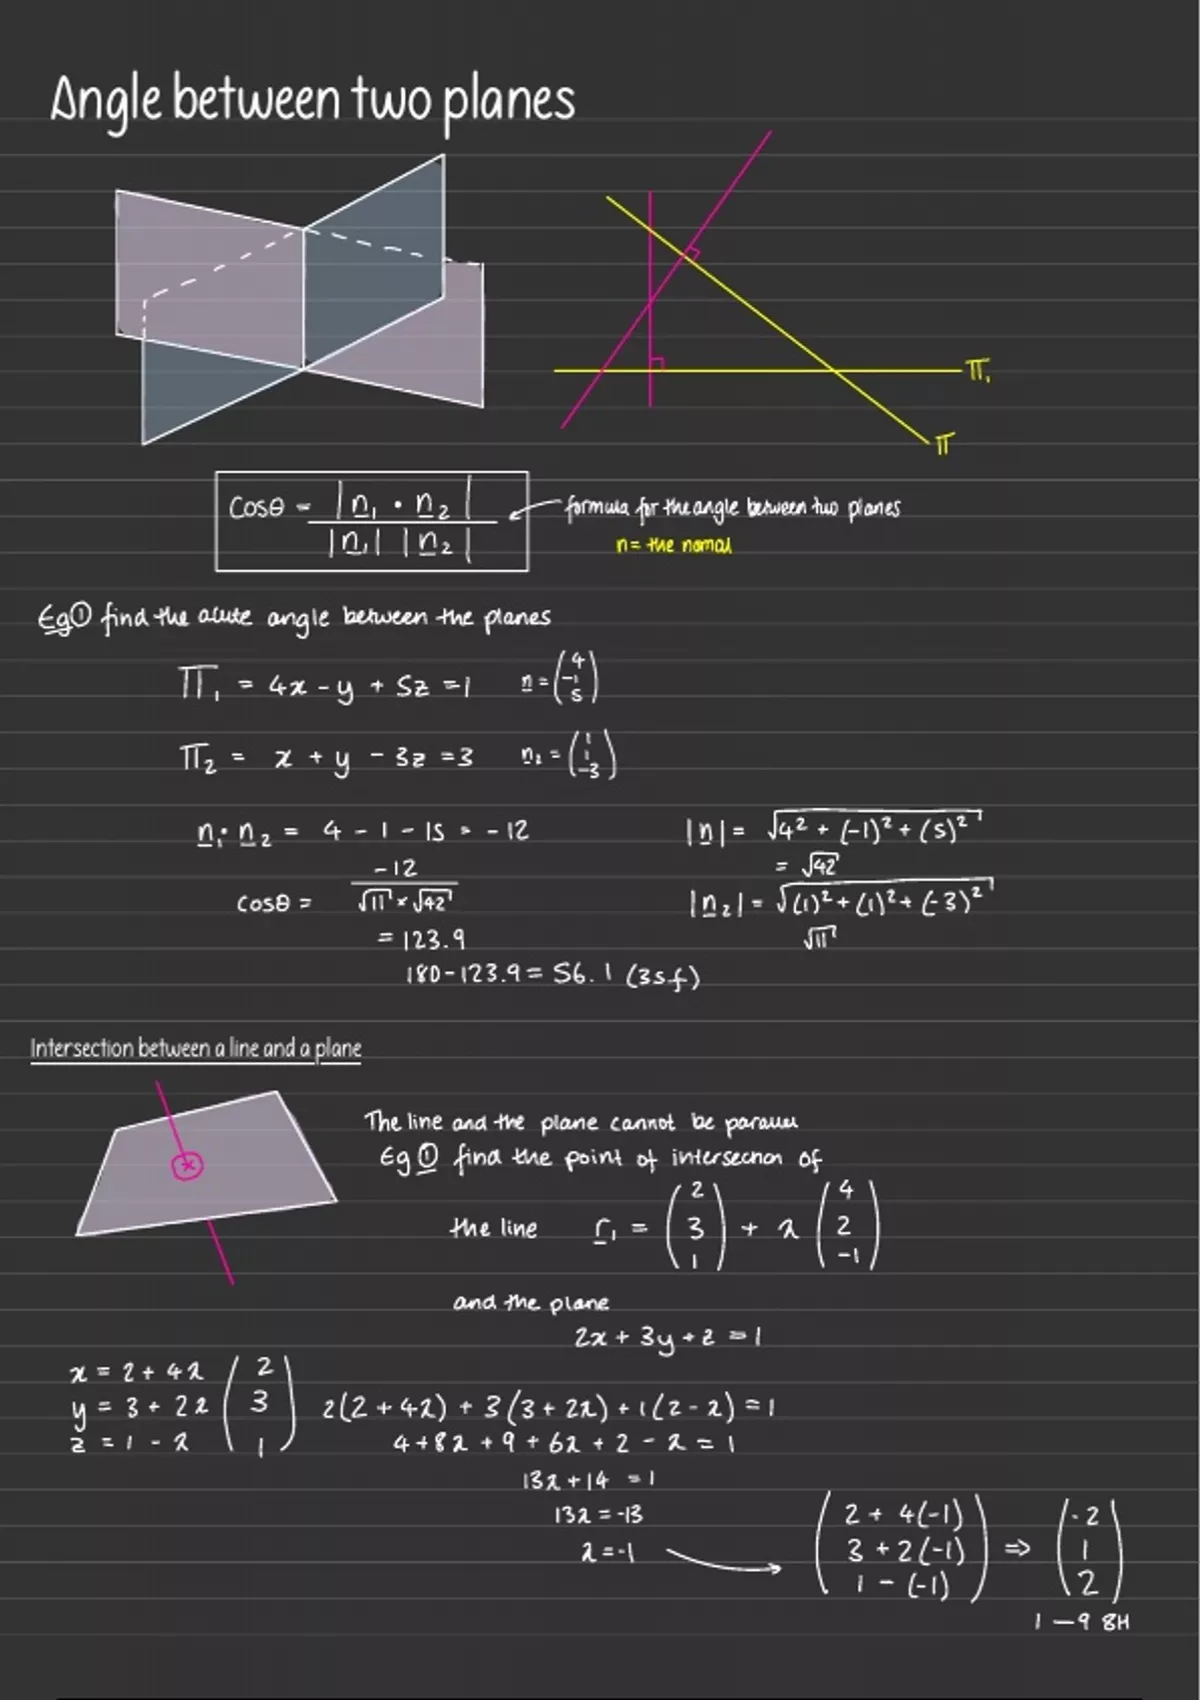 Angle between two planes
π₁
π
cosθ = |n₁ · n₂| / |n₁| |n₂|
formula for the angle between two planes
n = the normal
Eg① find the acute angle between the planes
π₁ = 4x - y + 5z = 1 n = (4 -1 5)
π₂ = x + y - 3z = 3 n₂ = (1 1 -3)
n₁· n₂ = 4 - 1 - 15 = -12
cosθ = -12 / √11 × √42
= 123.9
180 - 123.9 = 56.1 (3sf)
|n| = √4² + (-1)² + (5)²
= √42
|n₂| = √(1)² + (1)² + (-3)²
√11
Intersection between a line and a plane
The line and the plane cannot be parallel
Eg ① find the point of intersection of
the line r₁ = (2 3 1) + λ (4 2 -1)
and the plane
2x + 3y + z = 1
x = 2 + 4λ
y = 3 + 2λ
z = 1 - λ
(2 3 1)
2(2 + 4λ) + 3(3 + 2λ) + 1(2 - λ) = 1
4 + 8λ + 9 + 6λ + 2 - λ = 1
13λ + 14 = 1
13λ = -13
λ = -1
(2 + 4(-1)
3 + 2(-1)
1 - (-1)) ⇒ (-2 1 2)
1 - 9 8H